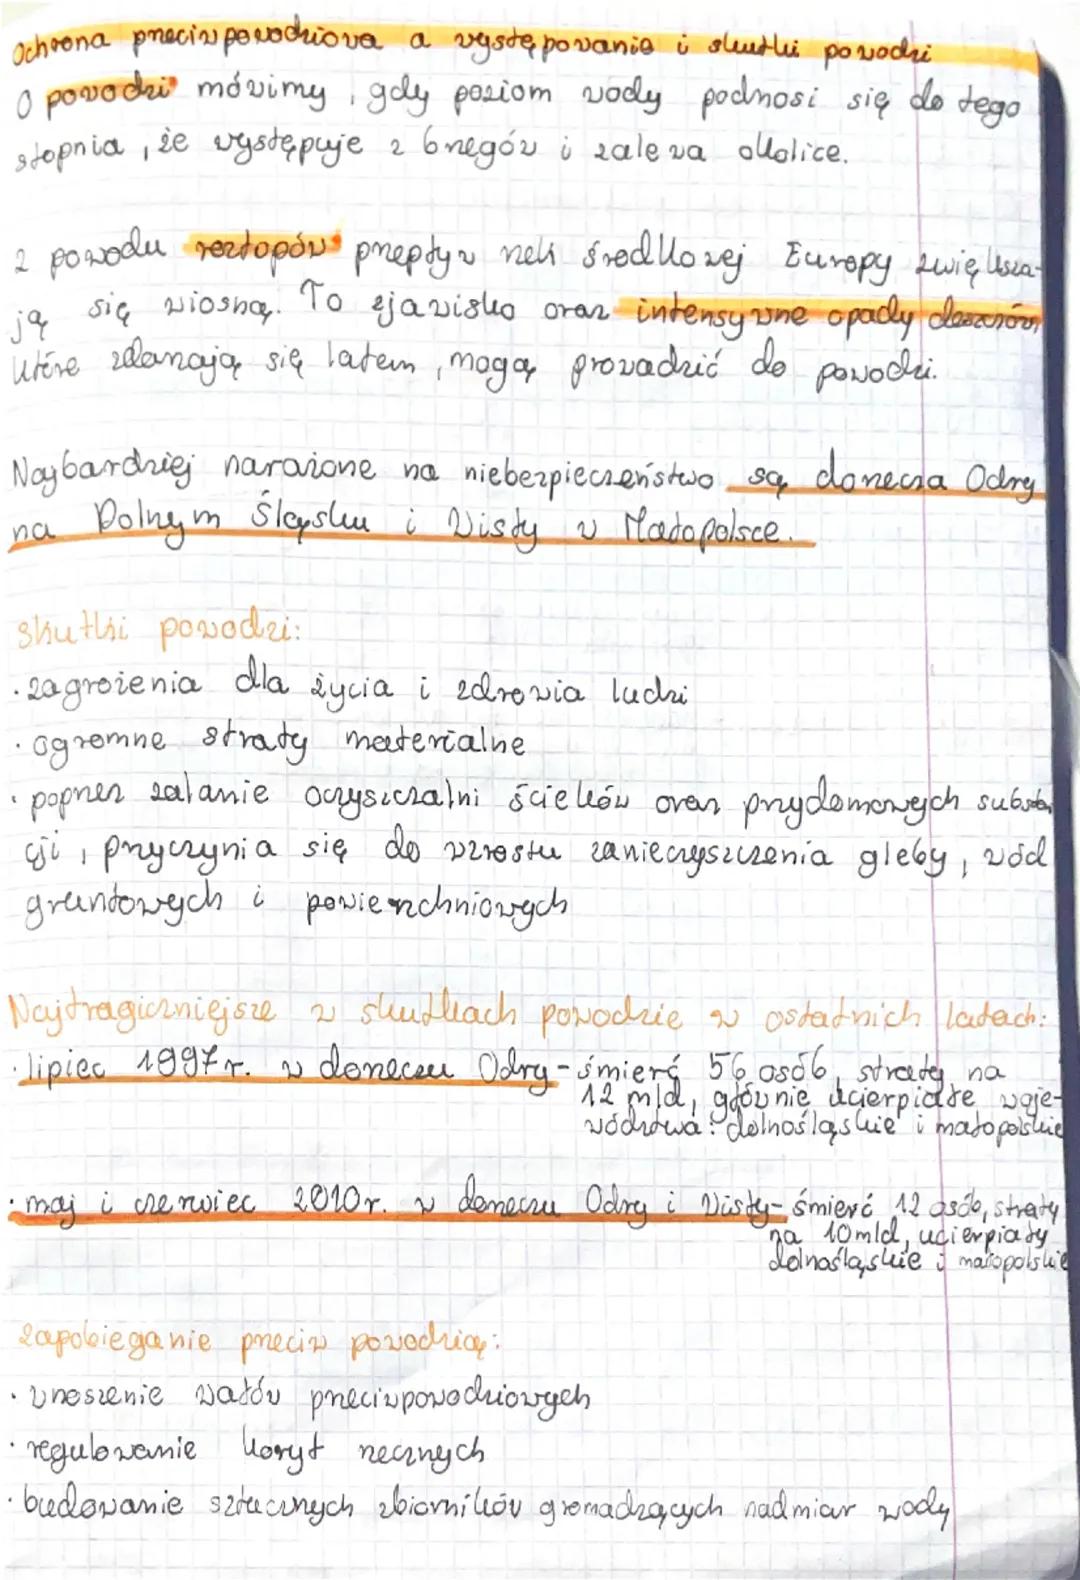 Ochrona przeciwpowodziowa a występowanie i skutki powodzi
O powodzi mówimy, gdy poziom wody podnosi się do tego
stopnia, że występuje z brzegów i zalewa okolice.
Z powodu roztopów przepływ rzek środkowej Europy zwiększa-
ją się wiosną. To zjawisko oraz intensywne opady deszczów,
które zdarzają się latem, mogą prowadzić do powodzi.
Najbardziej narażone na niebezpieczeństwo są dorzecza Odry
na Dolnym Śląsku i Wisły w Małopolsce.
Skutki powodzi:
· zagrożenia dla życia i zdrowia ludzi
· ogromne straty materialne
· poprzez zalanie oczyszczalni ścieków oraz przydomowych substan
cji, przyczynia się do wzrostu zanieczyszczenia gleby, wód
gruntowych i powierzchniowych
Najtragiczniejsze w skutkach powodzie w ostatnich latach:
· lipiec 1997r. w dorzeczu Odry - śmierć 56 osób, straty na
12 mld, głównie ucierpiałe woje-
wództwa: dolnośląskie i małopolskie
· maj i czerwiec 2010r. w dorzeczu Odry i Wisły - śmierć 12 osób, straty
na 10mld, ucierpiały
dolnośląskie i małopolskie
Zapobieganie przeciw powodzią:
· wnoszenie wałów przeciwpowodziowych
· regulowanie koryt rzecznych
· budowanie sztucznych zbiorników gromadzących nadmiar wody